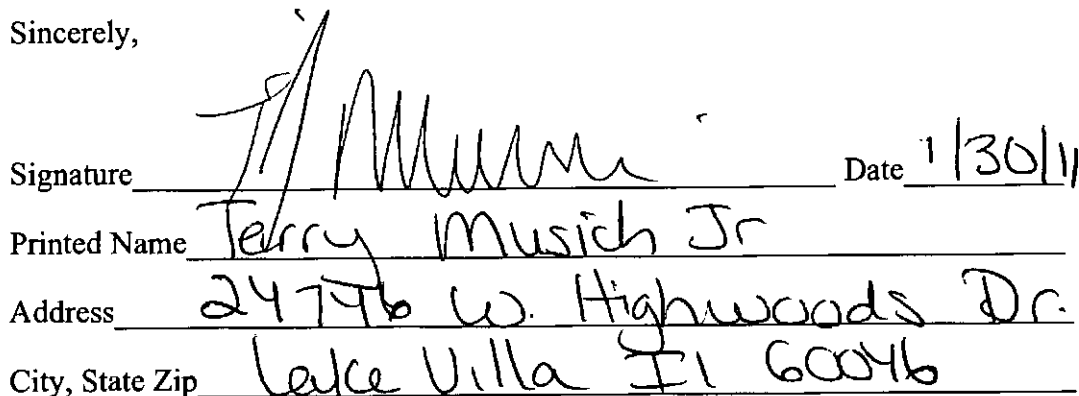 Sincerely,
Signature Date 1/30/11
Printed Name Terry Musich Jr
Address 24746 W. Highwoods Dr.
City, State Zip Lake Villa Il 60046